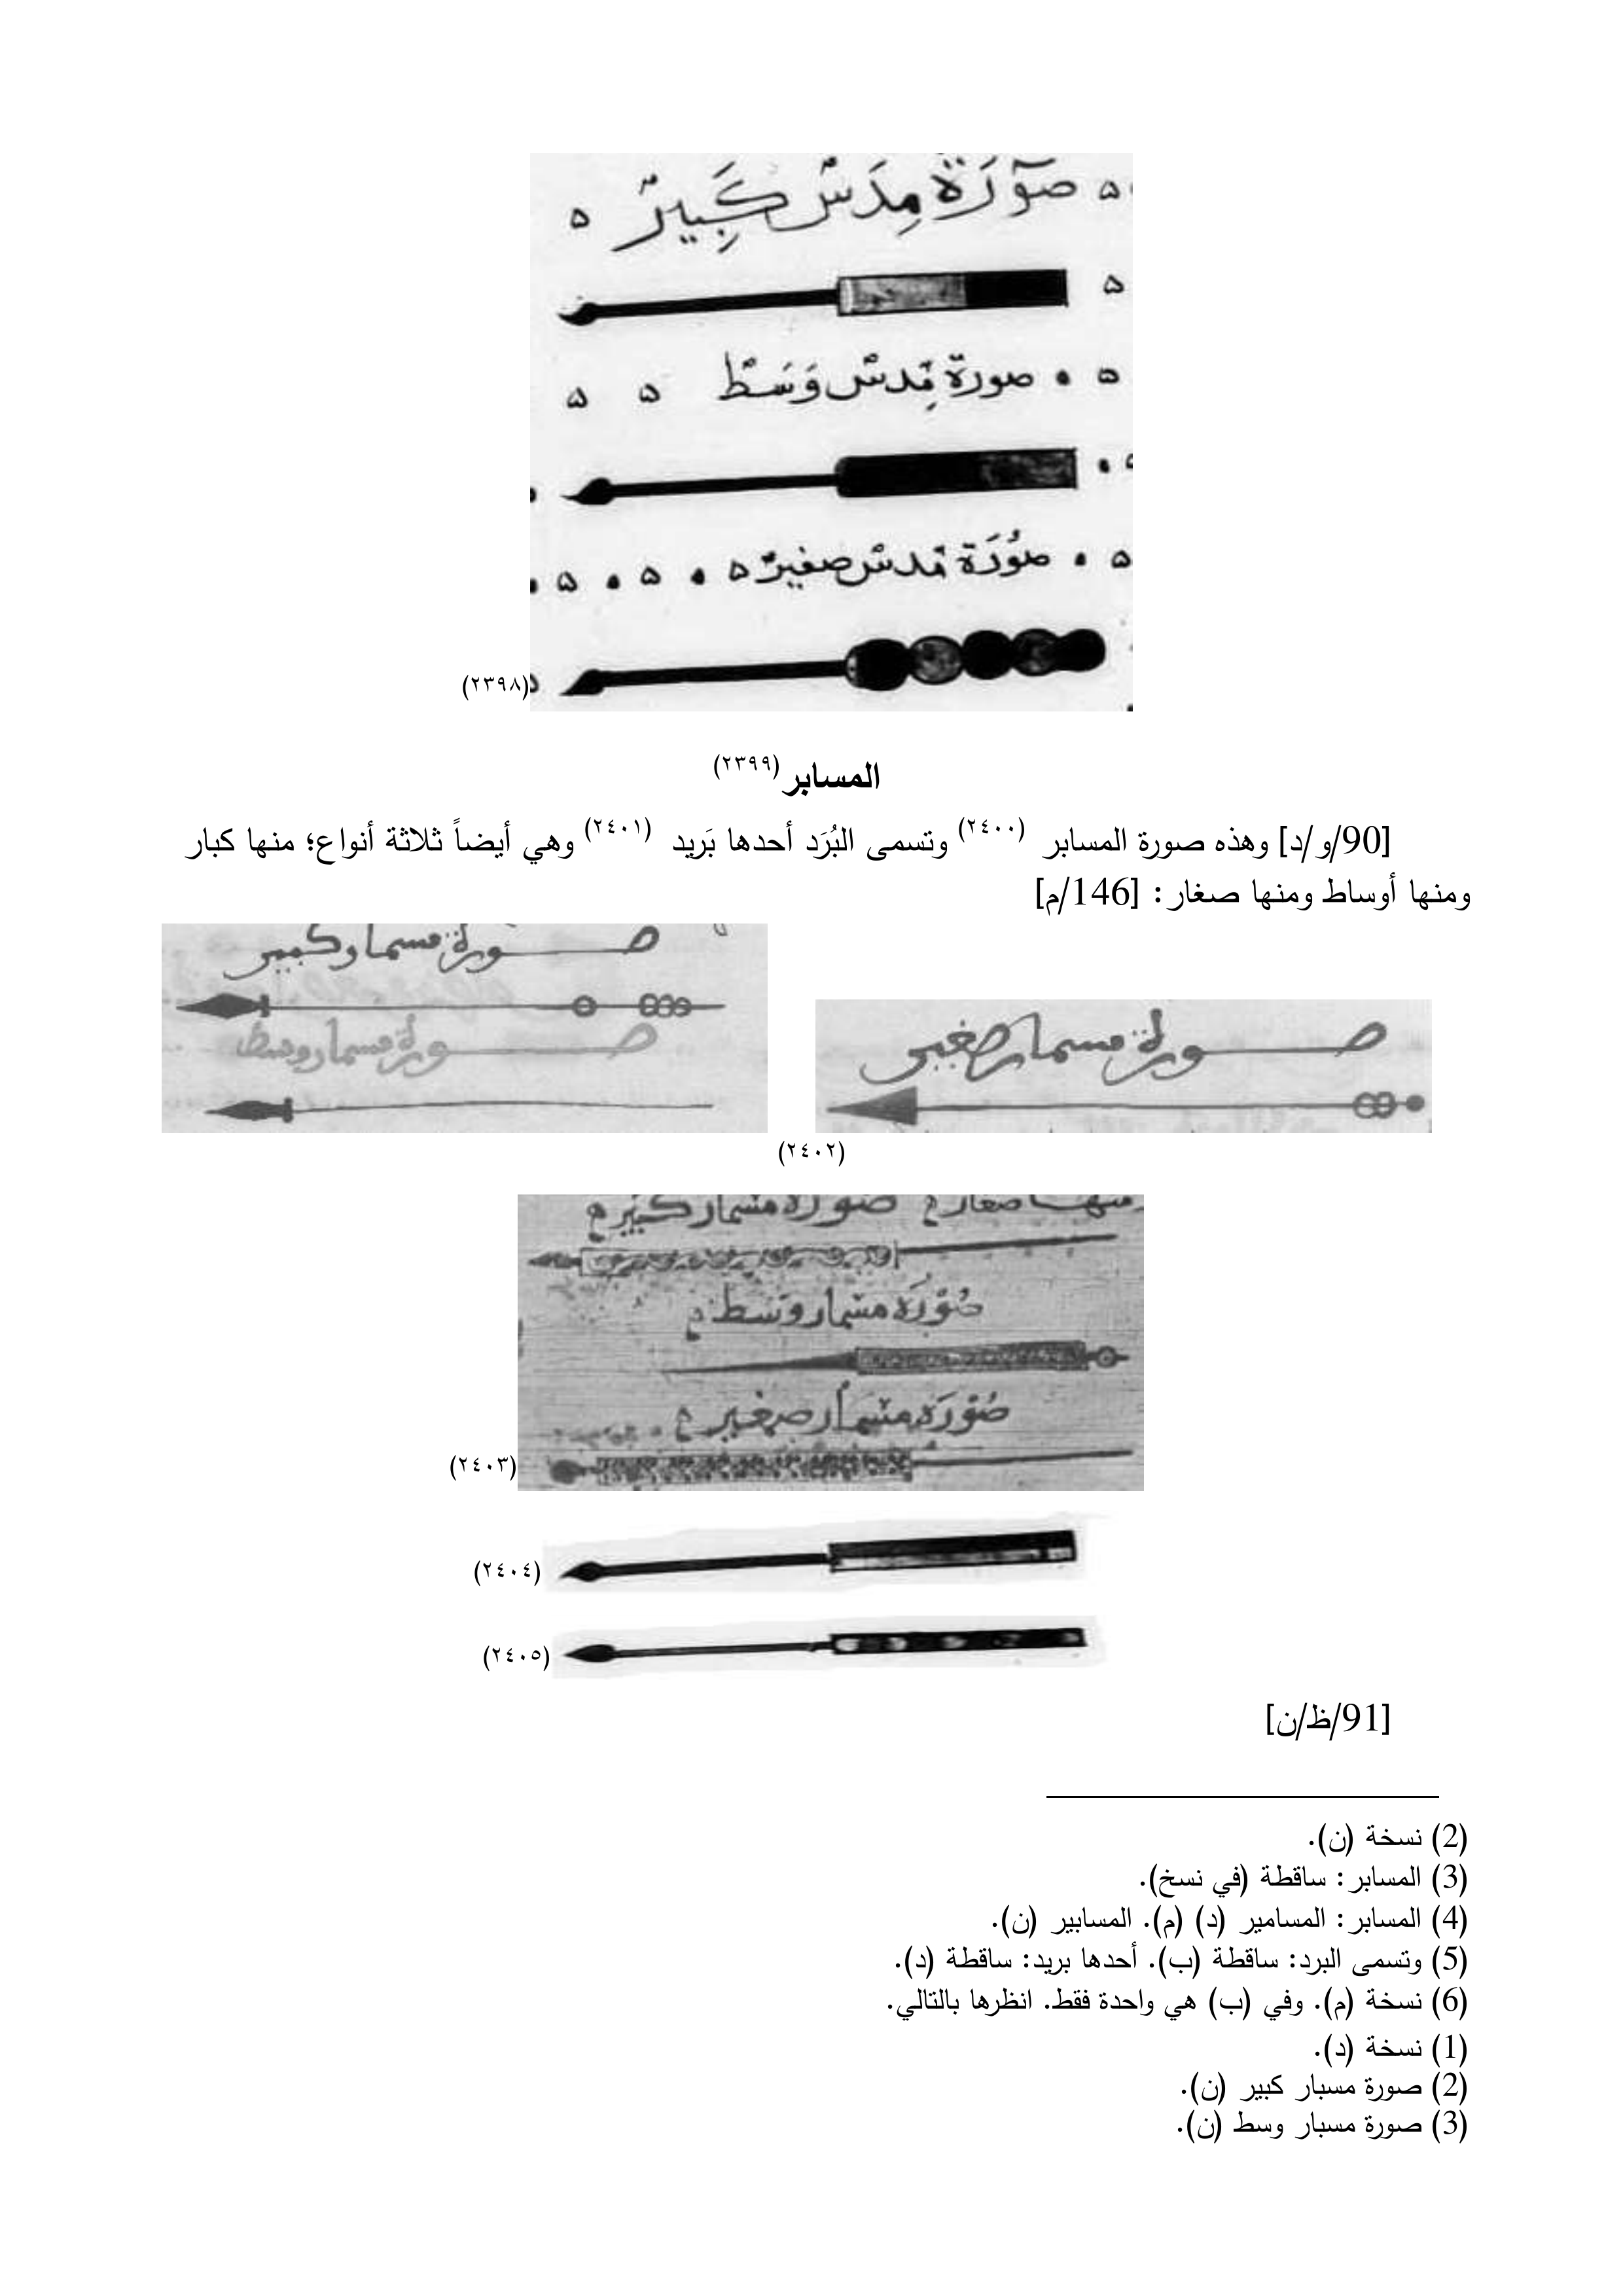 صُورَة مِدَسّ كَبِير ه
صورة مِدسّ وَسَط ه ه
صُورَة مدسّ صغير ه • ه • ه •
(٢٣٩٨)
المسابر(٢٣٩٩)
[90/و/د] وهذه صورة المسابر (٢٤٠٠) وتسمى البُرَد أحدها بَريد (٢٤٠١) وهي أيضاً ثلاثة أنواع؛ منها كبار
ومنها أوساط ومنها صغار: [146/م]
صورة مسمار كبير
صورة مسمار وسط
صورة مسمار صغير
(٢٤٠٢)
منها صغار صورة مسمار كبير
صُورَة مسمار وسط
صُورَة مسمار صغير
(٢٤٠٣)
(٢٤٠٤)
(٢٤٠٥)
[91/ظ/ن]
(2) نسخة (ن).
(3) المسابر: ساقطة (في نسخ).
(4) المسابر: المسامير (د) (م). المسابير (ن).
(5) وتسمى البرد: ساقطة (ب). أحدها بريد: ساقطة (د).
(6) نسخة (م). وفي (ب) هي واحدة فقط. انظرها بالتالي.
(1) نسخة (د).
(2) صورة مسبار كبير (ن).
(3) صورة مسبار وسط (ن).